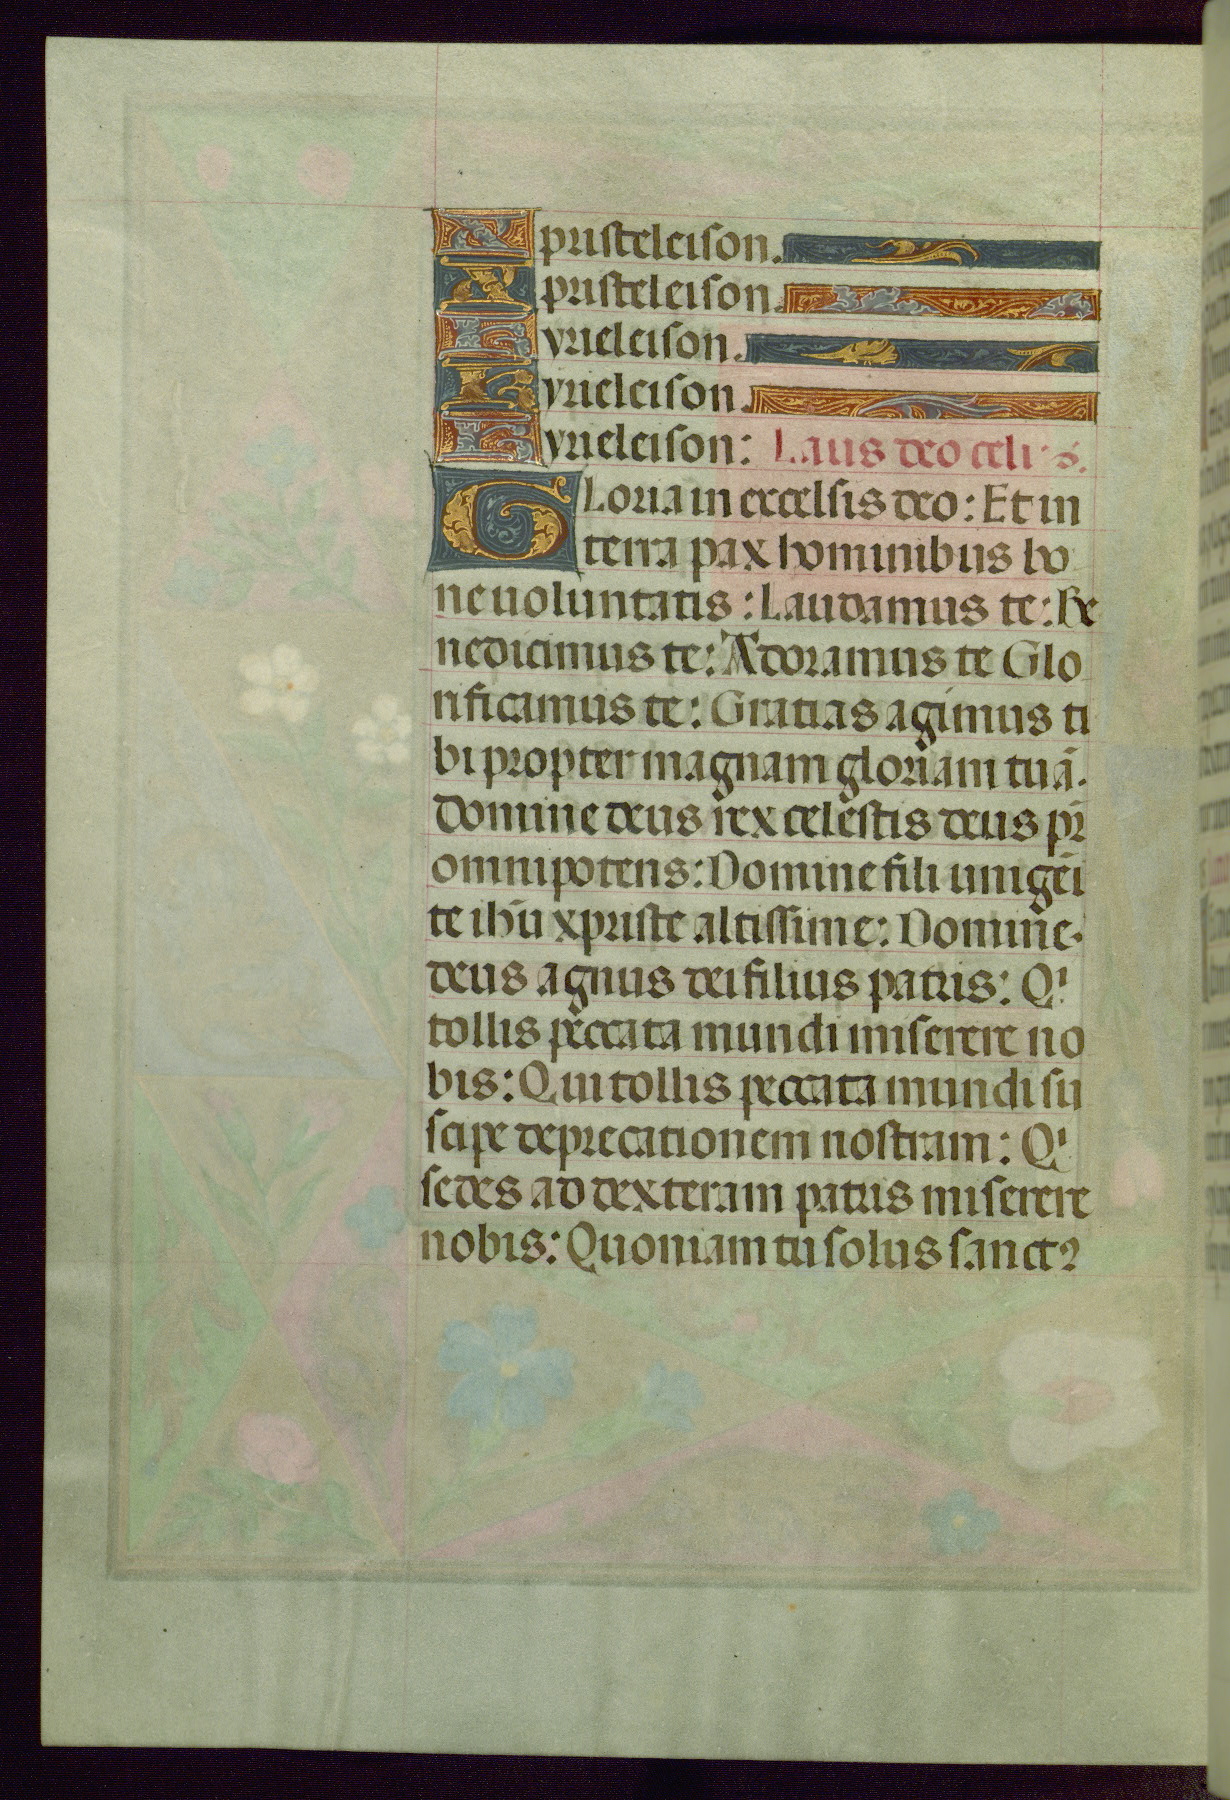 Xpristeleison.
Xpristeleison.
Kyrieleison.
Kyrieleison.
Kyrieleison: Laus deo celi s.
Gloria in excelsis deo: Et in
terra pax hominibus bo
ne uoluntatis: Laudamus te: Be
nedicimus te: Adoramus te Glo
rificamus te: Gratias agimus ti
bi propter magnam gloriam tuā.
domine deus rex celestis deus pr̄
omnipotens: Domine fili unigēi
te ihū xpriste altissime: Domine
deus agnus dei filius patris: Qⁱ
tollis peccata mundi miserere no
bis: Qui tollis peccata mundi su
scipe deprecationem nostram: Qⁱ
sedes ad dexteram patris miserere
nobis: Quoniam tu solus sanctꝰ